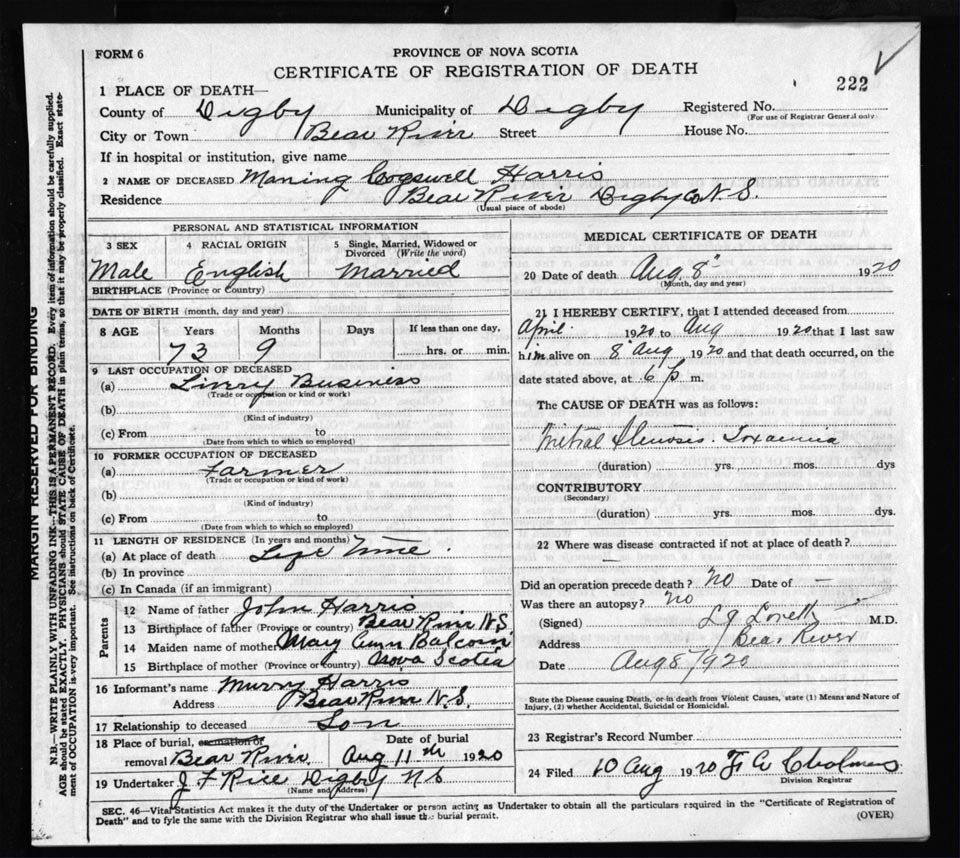 FORM 6
PROVINCE OF NOVA SCOTIA
CERTIFICATE OF REGISTRATION OF DEATH
222
1 PLACE OF DEATH—
County of Digby Municipality of Digby Registered No.
(For use of Registrar General only)
City or Town Bear River Street House No.
If in hospital or institution, give name
2 NAME OF DECEASED Maning Cogswell Harris
Residence Bear River Digby Co N.S.
(Usual place of abode)
PERSONAL AND STATISTICAL INFORMATION
3 SEX 4 RACIAL ORIGIN 5 Single, Married, Widowed or Divorced (Write the word)
Male English Married
BIRTHPLACE (Province or Country)
DATE OF BIRTH (month, day and year)
8 AGE Years Months Days If less than one day,
73 9 hrs. or min.
9 LAST OCCUPATION OF DECEASED
(a) Livery Business
(Trade or occupation or kind of work)
(b)
(Kind of industry)
(c) From to
(Date from which to which so employed)
10 FORMER OCCUPATION OF DECEASED
(a) Farmer
(Trade or occupation or kind of work)
(b)
(Kind of industry)
(c) From to
(Date from which to which so employed)
11 LENGTH OF RESIDENCE (In years and months)
(a) At place of death Life Time.
(b) In province
(c) In Canada (if an immigrant)
Parents
12 Name of father John Harris
13 Birthplace of father (Province or country) Bear River N.S
14 Maiden name of mother Mary Ann Balcom
15 Birthplace of mother (Province or country) Nova Scotia
16 Informant's name Murry Harris
Address Bear River N.S.
17 Relationship to deceased Son
18 Place of burial, cremation or removal Bear River
Date of burial Aug 11th 1920
19 Undertaker J F Rice Digby N S
(Name and address)
MEDICAL CERTIFICATE OF DEATH
20 Date of death Aug 8" 1920
(Month, day and year)
21 I HEREBY CERTIFY, that I attended deceased from
April 1920 to Aug 1920 that I last saw
him alive on 8 Aug 1920 and that death occurred, on the
date stated above, at 6 p m.
The CAUSE OF DEATH was as follows:
Mitral Stenosis. Toxaemia
(duration) yrs. mos. dys
CONTRIBUTORY
(Secondary)
(duration) yrs. mos. dys.
22 Where was disease contracted if not at place of death?
—
Did an operation precede death? no Date of —
Was there an autopsy? no
(Signed) L J Lovett M.D.
Address Bear River
Date Aug 8 1920
State the Disease causing Death, or in death from Violent Causes, state (1) Means and Nature of
Injury, (2) whether Accidental, Suicidal or Homicidal.
23 Registrar's Record Number
24 Filed 10 Aug 1920
Division Registrar
SEC. 46—Vital Statistics Act makes it the duty of the Undertaker or person acting as Undertaker to obtain all the particulars required in the "Certificate of Registration of
Death" and to fyle the same with the Division Registrar who shall issue the burial permit.
(OVER)
MARGIN RESERVED FOR BINDING
N.B.—WRITE PLAINLY WITH UNFADING INK—THIS IS A PERMANENT RECORD. Every item of information should be carefully supplied.
AGE should be stated EXACTLY. PHYSICIANS should STATE CAUSE OF DEATH in plain terms, so that it may be properly classified. Exact state-
ment of OCCUPATION is very important. See instructions on back of Certificate.